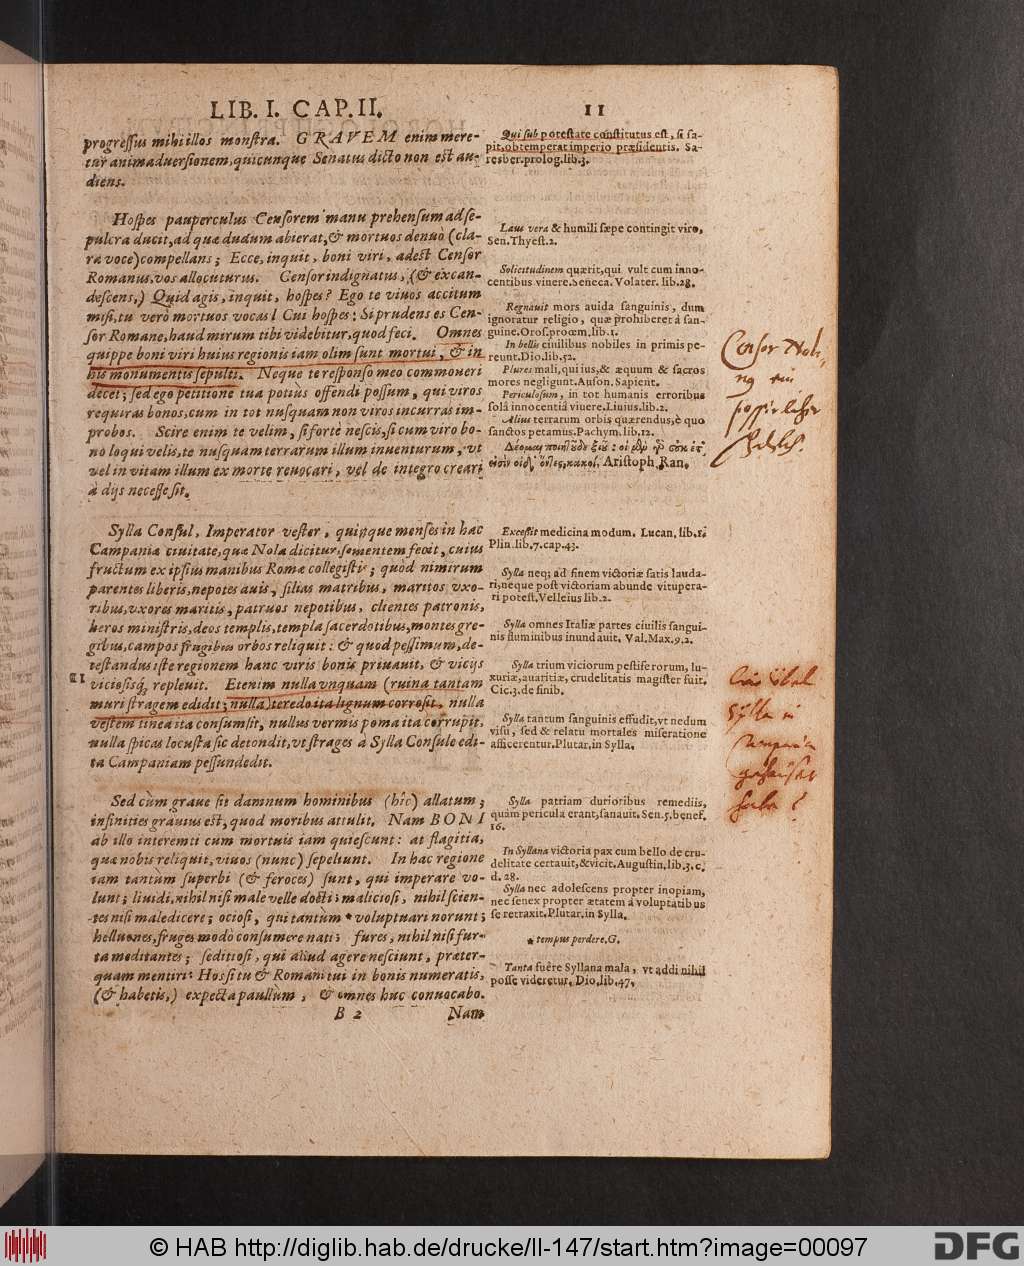 LIB. I. CAP. II. 11
progressus mihi illos monstra. GRAVEM enim mere-
tur animaduersionem, quicunque Senatus dicto non est au-
diens.
Hospes pauperculus Censorem manu prehensum ad se-
pulcra ducit, ad quæ dudum abierat, & mortuos denuò (cla-
ra voce) compellans; Ecce, inquit, boni viri, adest Censor
Romanus, vos allocuturus. Censor indignatus, (& excan-
descens,) Quid agis, inquit, hospes? Ego te viuos accitum
misi, tu verò mortuos vocas! Cui hospes: Si prudens es Cen-
sor Romane, haud mirum tibi videbitur, quod feci. Omnes
quippe boni viri huius regionis iam olim sunt mortui, & in
his monumentis sepulti. Neque te responso meo commoueri
decet; sed ego petitione tua potiùs offendi possum, qui viros
requiras bonos, cum in tot nusquam non viros incurras im-
probos. Scire enim te velim, si fortè nescis, si cum viro bo-
no loqui velis, te nusquam terrarum illum inuenturum, vt
vel in vitam illum ex morte reuocari, vel de integro creari
à dijs necesse sit.
Sylla Consul, Imperator vester, quinque menses in hac
Campania ciuitate, quæ Nola dicitur, sementem fecit, cuius
fructum ex ipsius manibus Romæ collegistis; quòd nimirum
parentes liberis, nepotes auis, filias matribus, maritos vxo-
ribus, vxores maritis, patruos nepotibus, clientes patronis,
heros ministris, deos templis, templa sacerdotibus, montes gre-
gibus, campos frugibus orbos reliquit: & quod pessimum, de-
testandus iste regionem hanc viris bonis priuauit, & vicijs
viciosisq́; repleuit. Etenim nulla vnquam (ruina tantam
muri stragem edidit; nulla) teredo ita lignum corrosit, nulla
vestem tinea ita consumsit, nullus vermis poma ita corrupit,
nulla spicas locusta sic detondit, vt strages à Sylla Consule edi-
ta Campaniam pessundedit.
Sed cùm graue sit damnum hominibus (hîc) allatum;
infinities grauius est, quod moribus attulit. Nam BONI
ab illo interemti cum mortuis iam quiescunt: at flagitia,
quæ nobis reliquit, viuos (nunc) sepeliunt. In hac regione
iam tantùm superbi (& feroces) sunt, qui imperare vo-
lunt; liuidi, nihil nisi male velle docti; maliciosi, nihil scien-
tes nisi maledicere; ociosi, qui tantùm * voluptuari norunt;
helluones, fruges modò consumere nati; fures, nihil nisi fur-
ta meditantes; seditiosi, qui aliud agere nesciunt, præter-
quam mentiri: Hos si tu & Romani tui in bonis numeratis,
(& habetis,) expecta paullùm, & omnes huc conuocabo.
B 2 Nam
Qui sub potestate constitutus est, si sa-
pit, obtemperat imperio præsidentis. Sa-
resber. prolog. lib. 3.
Laus vera & humili sæpe contingit viro,
Sen. Thyest. 2.
Solicitudinem quærit, qui vult cum inno-
centibus viuere. Seneca. Volater. lib. 28.
Regnauit mors auida sanguinis, dum
ignoratur religio, quæ prohiberet à san-
guine. Oros. proœm. lib. 1.
In bellis ciuilibus nobiles in primis pe-
reunt. Dio. lib. 52.
Plures mali, qui ius, & æquum & sacros
mores negligunt. Auson. Sapient.
Periculosum, in tot humanis erroribus
solâ innocentiâ viuere. Liuius. lib. 2.
Alius terrarum orbis quærendus, è quo
sanctos petamus. Pachym. lib. 12.
Aristoph. Ran.
Excessit medicina modum. Lucan. lib. 5.
Plin. lib. 7. cap. 43.
Sylla neq; ad finem victoriæ satis lauda-
ri, neque post victoriam abunde vitupera-
ri potest. Velleius lib. 2.
Sylla omnes Italiæ partes ciuilis sangui-
nis fluminibus inundauit. Val. Max. 9. 2.
Sylla trium viciorum pestiferorum, lu-
xuriæ, auaritiæ, crudelitatis magister fuit.
Cic. 3. de finib.
Sylla tantum sanguinis effudit, vt nedum
visu, sed & relatu mortales miseratione
afficerentur. Plutar. in Sylla.
Sylla patriam durioribus remediis,
quàm pericula erant, sanauit. Sen. 5. benef.
16.
In Syllana victoria pax cum bello de cru-
delitate certauit, & vicit. Augustin. lib. 3. c.
d. 28.
Sylla nec adolescens propter inopiam,
nec senex propter ætatem à voluptatibus
se retraxit. Plutar. in Sylla.
* tempus perdere. G.
Tanta fuêre Syllana mala, vt addi nihil
posse videretur. Dio. lib. 47.
Censor
Sylla in
© HAB http://diglib.hab.de/drucke/li-147/start.htm?image=00097
DFG